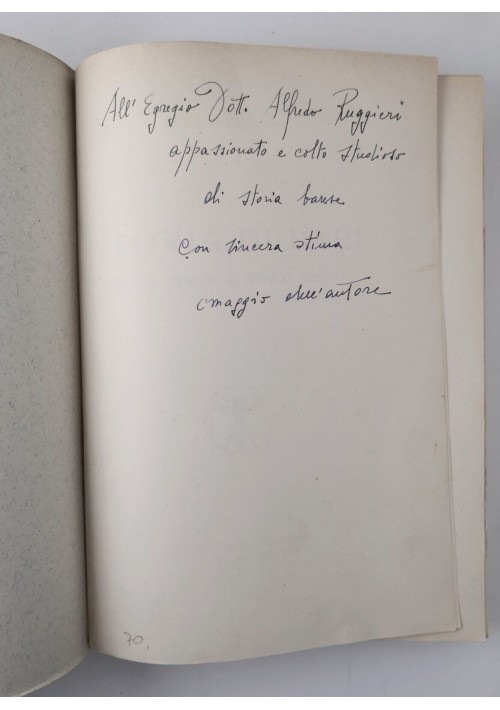 All' Egregio Dott. Alfredo Ruggieri
appassionato e colto studioso
di storia barese
con sincera stima
omaggio dell'autore
70.